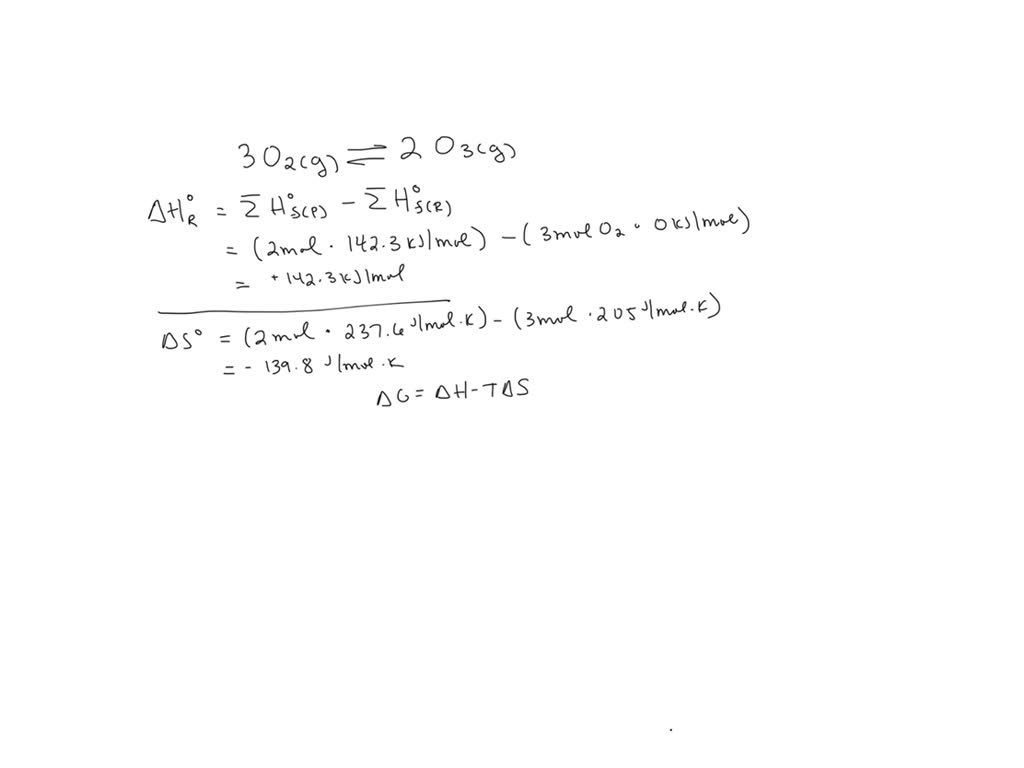 3 O₂(g) ⇌ 2 O₃(g)
ΔH°R = Σ H°f(P) - Σ H°f(R)
= (2mol · 142.3 kJ/mol) - (3mol O₂ · 0 kJ/mol)
= +142.3 kJ/mol
ΔS° = (2mol · 237.6 J/mol.K) - (3mol · 205 J/mol.K)
= - 139.8 J/mol.K
ΔG = ΔH - TΔS